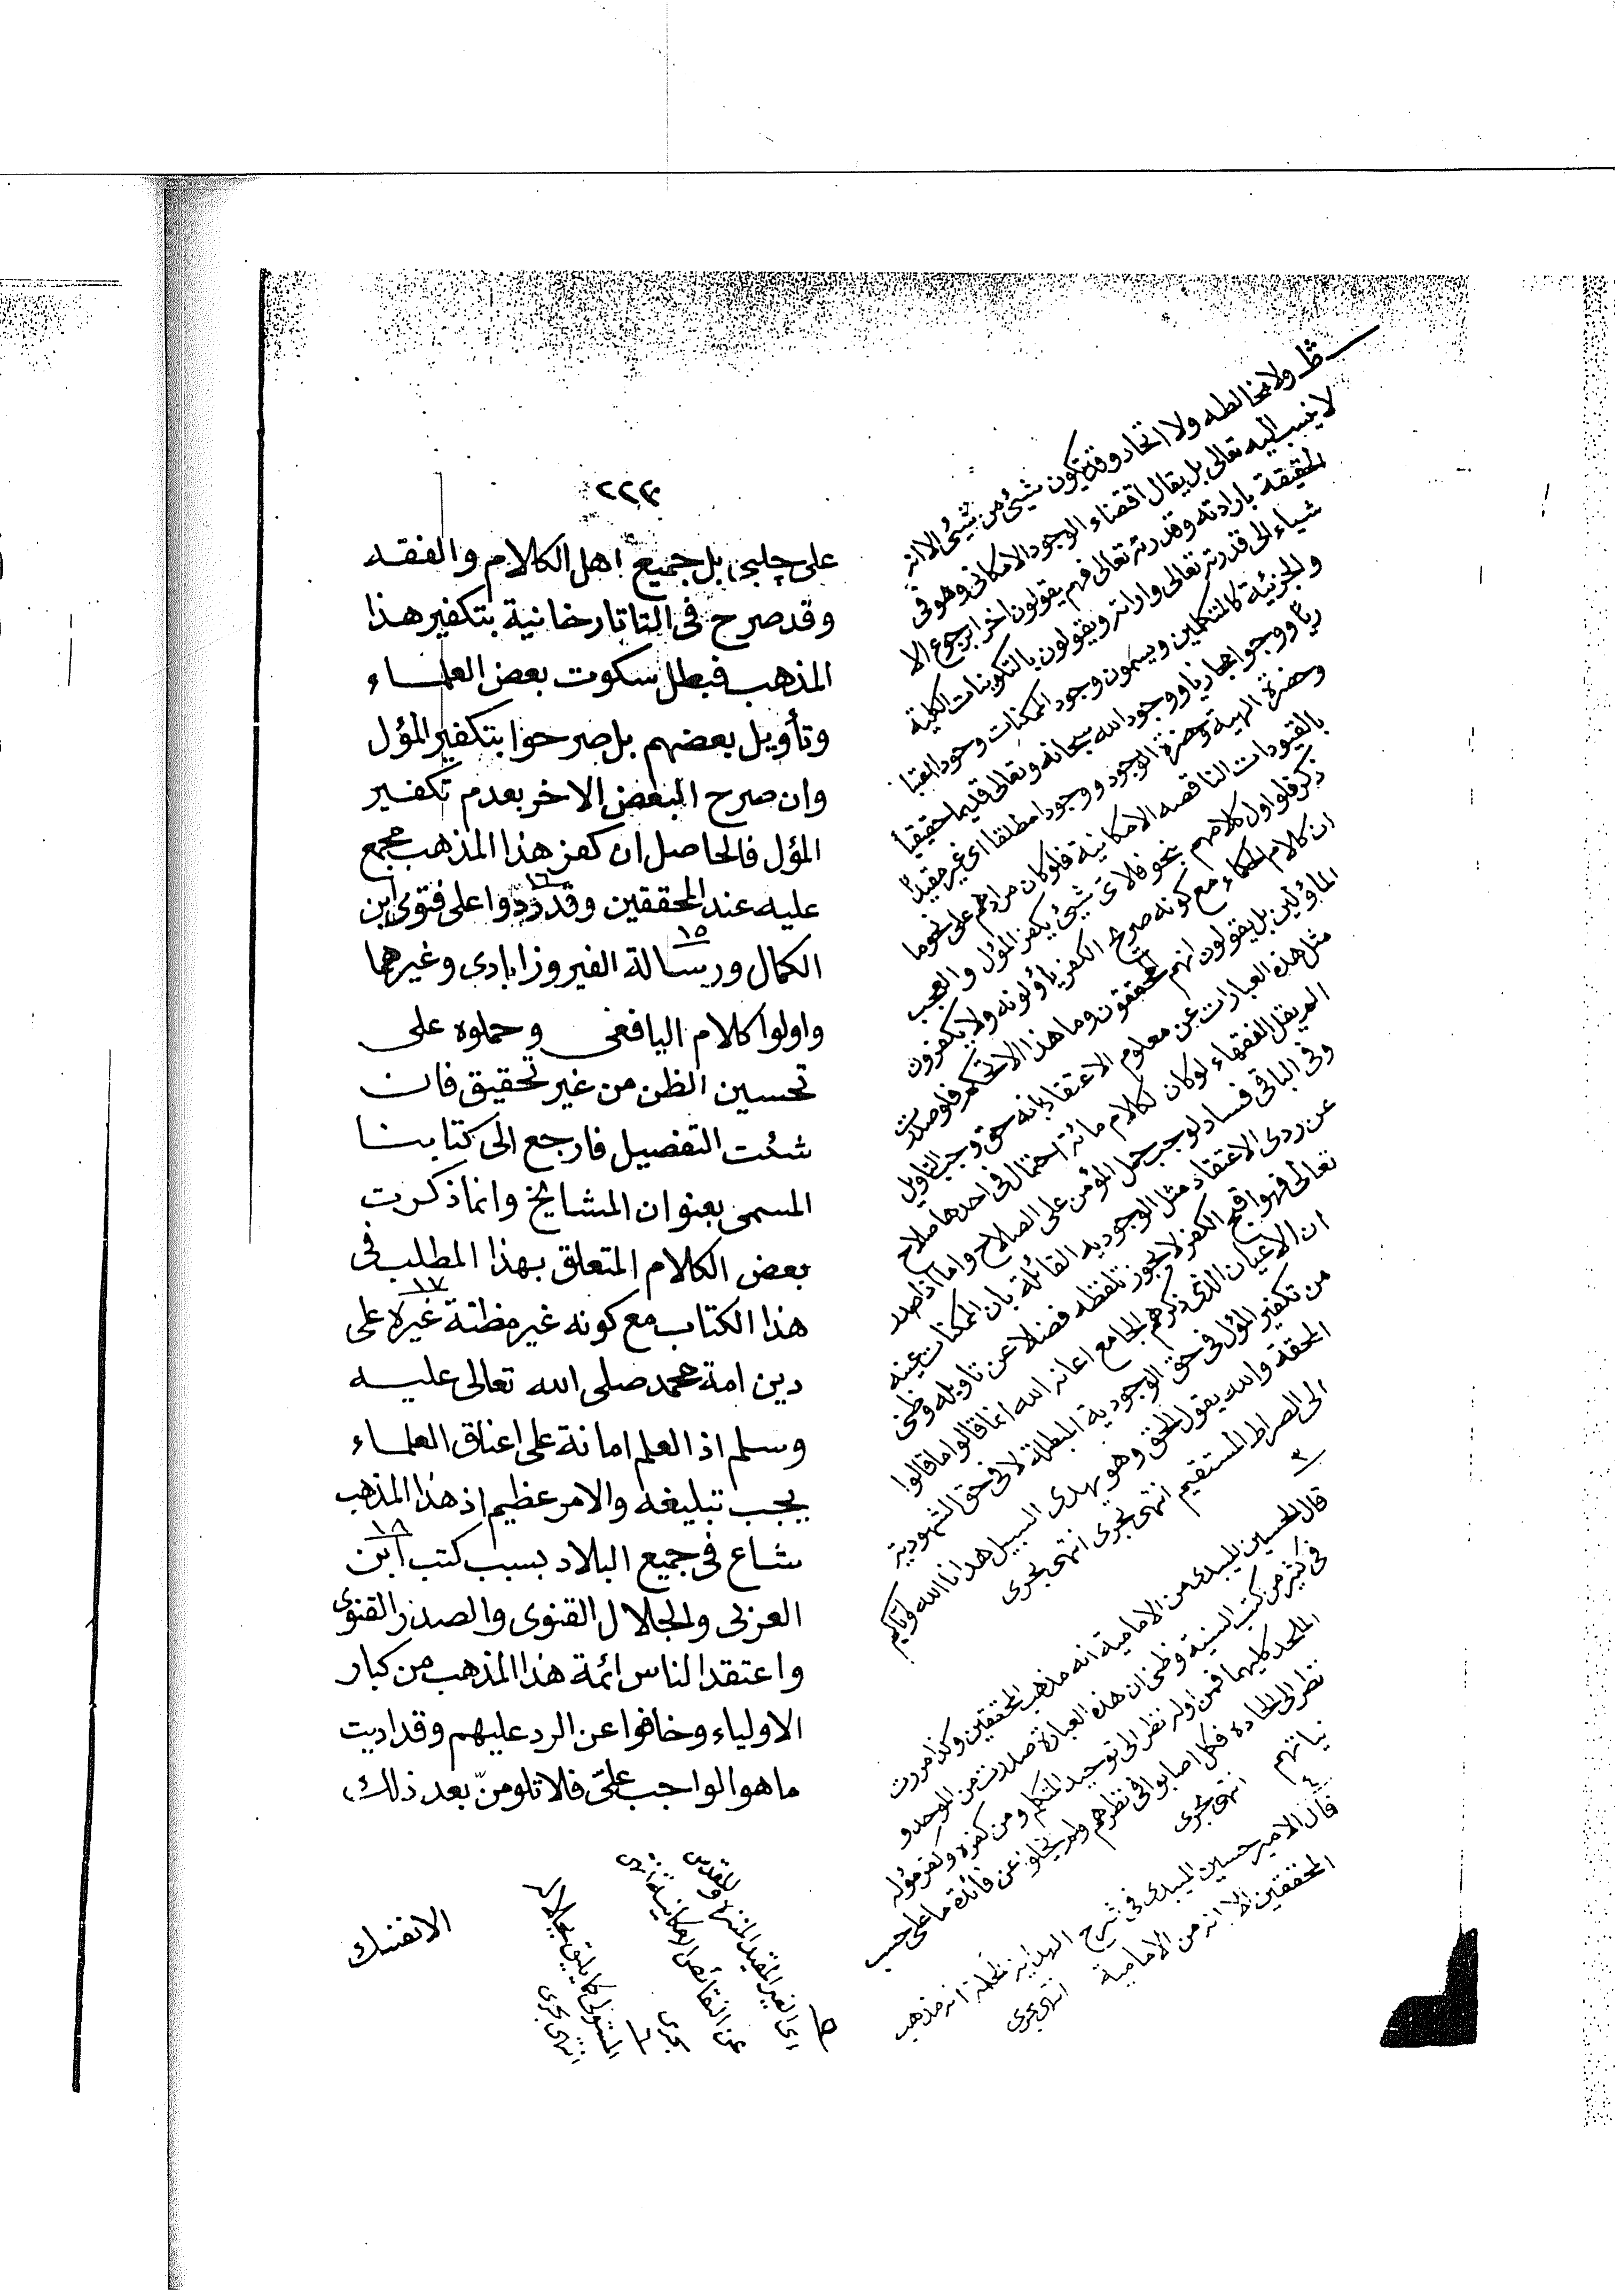 ٢٢٤
على چلبي بل جميع اهل الكلام والفقه
وقد صرح في التاتارخانية بتكفير هذا
المذهب فبطل سكوت بعض العلماء
وتأويل بعضهم بل صرحوا بتكفير المؤل
وان صرح البعض الاخر بعدم تكفير
المؤل فالحاصل ان كفر هذا المذهب مجمع
عليه عند المحققين وقد ردوا على فتوى ابن
١٦
الكمال ورسالة الفيروزابادى وغيرهما
١٥
واولوا كلام اليافعى وحملوه على
تحسين الظن من غير تحقيق فان
شئت التفصيل فارجع الى كتابنا
المسمى بعنوان المشايخ وانما ذكرت
بعض الكلام المتعلق بهذا المطلب فى
هذا الكتاب مع كونه غير مظنة غيرة على
١٧
دين امة محمد صلى الله تعالى عليه
وسلم اذ العلم امانة على اعناق العلماء
يجب تبليغه والامر عظيم اذ هذا المذهب
شاع فى جميع البلاد بسبب كتب ابن
١٨
العربى والجلال القنوى والصدر القنوى
واعتقد الناس ائمة هذا المذهب من كبار
الاولياء وخافوا عن الرد عليهم وقد اديت
ما هو الواجب علىّ فلا تلومنّ بعد ذلك
الانفسك
ولا مخالطه ولا اتحاد وقد يكون شيئ من شيئ الا انه
لا ينسب اليه تعالى بل يقال اقتضاء الوجود الامكانى وهو فى
الحقيقة بارادته وقدرته تعالى فهم يقولون اخرا برجوع الا
شياء الى قدرته تعالى وارادته ويقولون بالتكوينات الكلية
والجزئية كالمتكلمين ويسمون وجود الممكنات وجودا
ووجود الله سبحانه وتعالى قديما حقيقيا
وحضرة الهية وحضرة الوجود ووجودا مطلقا اى غير مقيد
بالقيودات الناقصه الامكانية فلو كان مرادهم على نحو ما
ذكر فلو اول كلامهم بنحو فلاى شيئ يكفر المؤل والعجب
ان كلام الحكماء مع كونه صريح الكفر يأولونه ولا يكفرون
المأولين بل يقولون انهم المحققون وما هذا الا تحكم فلو صدرت
مثل هذه العبارات عن معلوم الاعتقاد بانه حق وجب التاويل
الم يقل الفقهاء لو كان لكلام مائة احتمال فى احدها صلاح
وفى الباقى فساد لوجب حمل المؤمن على الصلاح واما اذا صدر
عن ردى الاعتقاد مثل الوجودية القائلة بان الممكنات عينه
تعالى فهو اقبح الكفر لا يجوز تلفظه فضلا عن تاويله وظنى
ان الاعيان الذى ذكرهم الجامع اعانه الله انما قالوا ما قالوا
من تكفير المؤل فى حق الوجودية المبطلة لا فى حق الشهودية
المحقة والله يقول الحق وهو يهدى السبيل هدانا الله واياكم
الى الصراط المستقيم انتهى بحرى انتهى بحرى
٣
قال الحسين الميبدى من الامامية انه مذهب المحققين وكذا مررت
فى كثير من كتب السنية وظنى ان هذه العبارة صدرت من الموحد و
الملحد كليهما فمن اوله نظر الى توحيد المتكلم ومن كفره وكفر مؤله
نظر الى الحاده فكل اصابوا فى نظرهم ولم يخلو عن فائدة ما على حسب
نياتهم انتهى بحرى
٤
قال الامير حسين الميبدى فى شرح الهداية انه مذهب
المحققين الا انه من الامامية انتهى بحرى
٥
اى الغير المقيد المنزه والمقدس
عن النقائص الامكانية انتهى
بحرى
٦
كما يليق بجلاله
انتهى بحرى